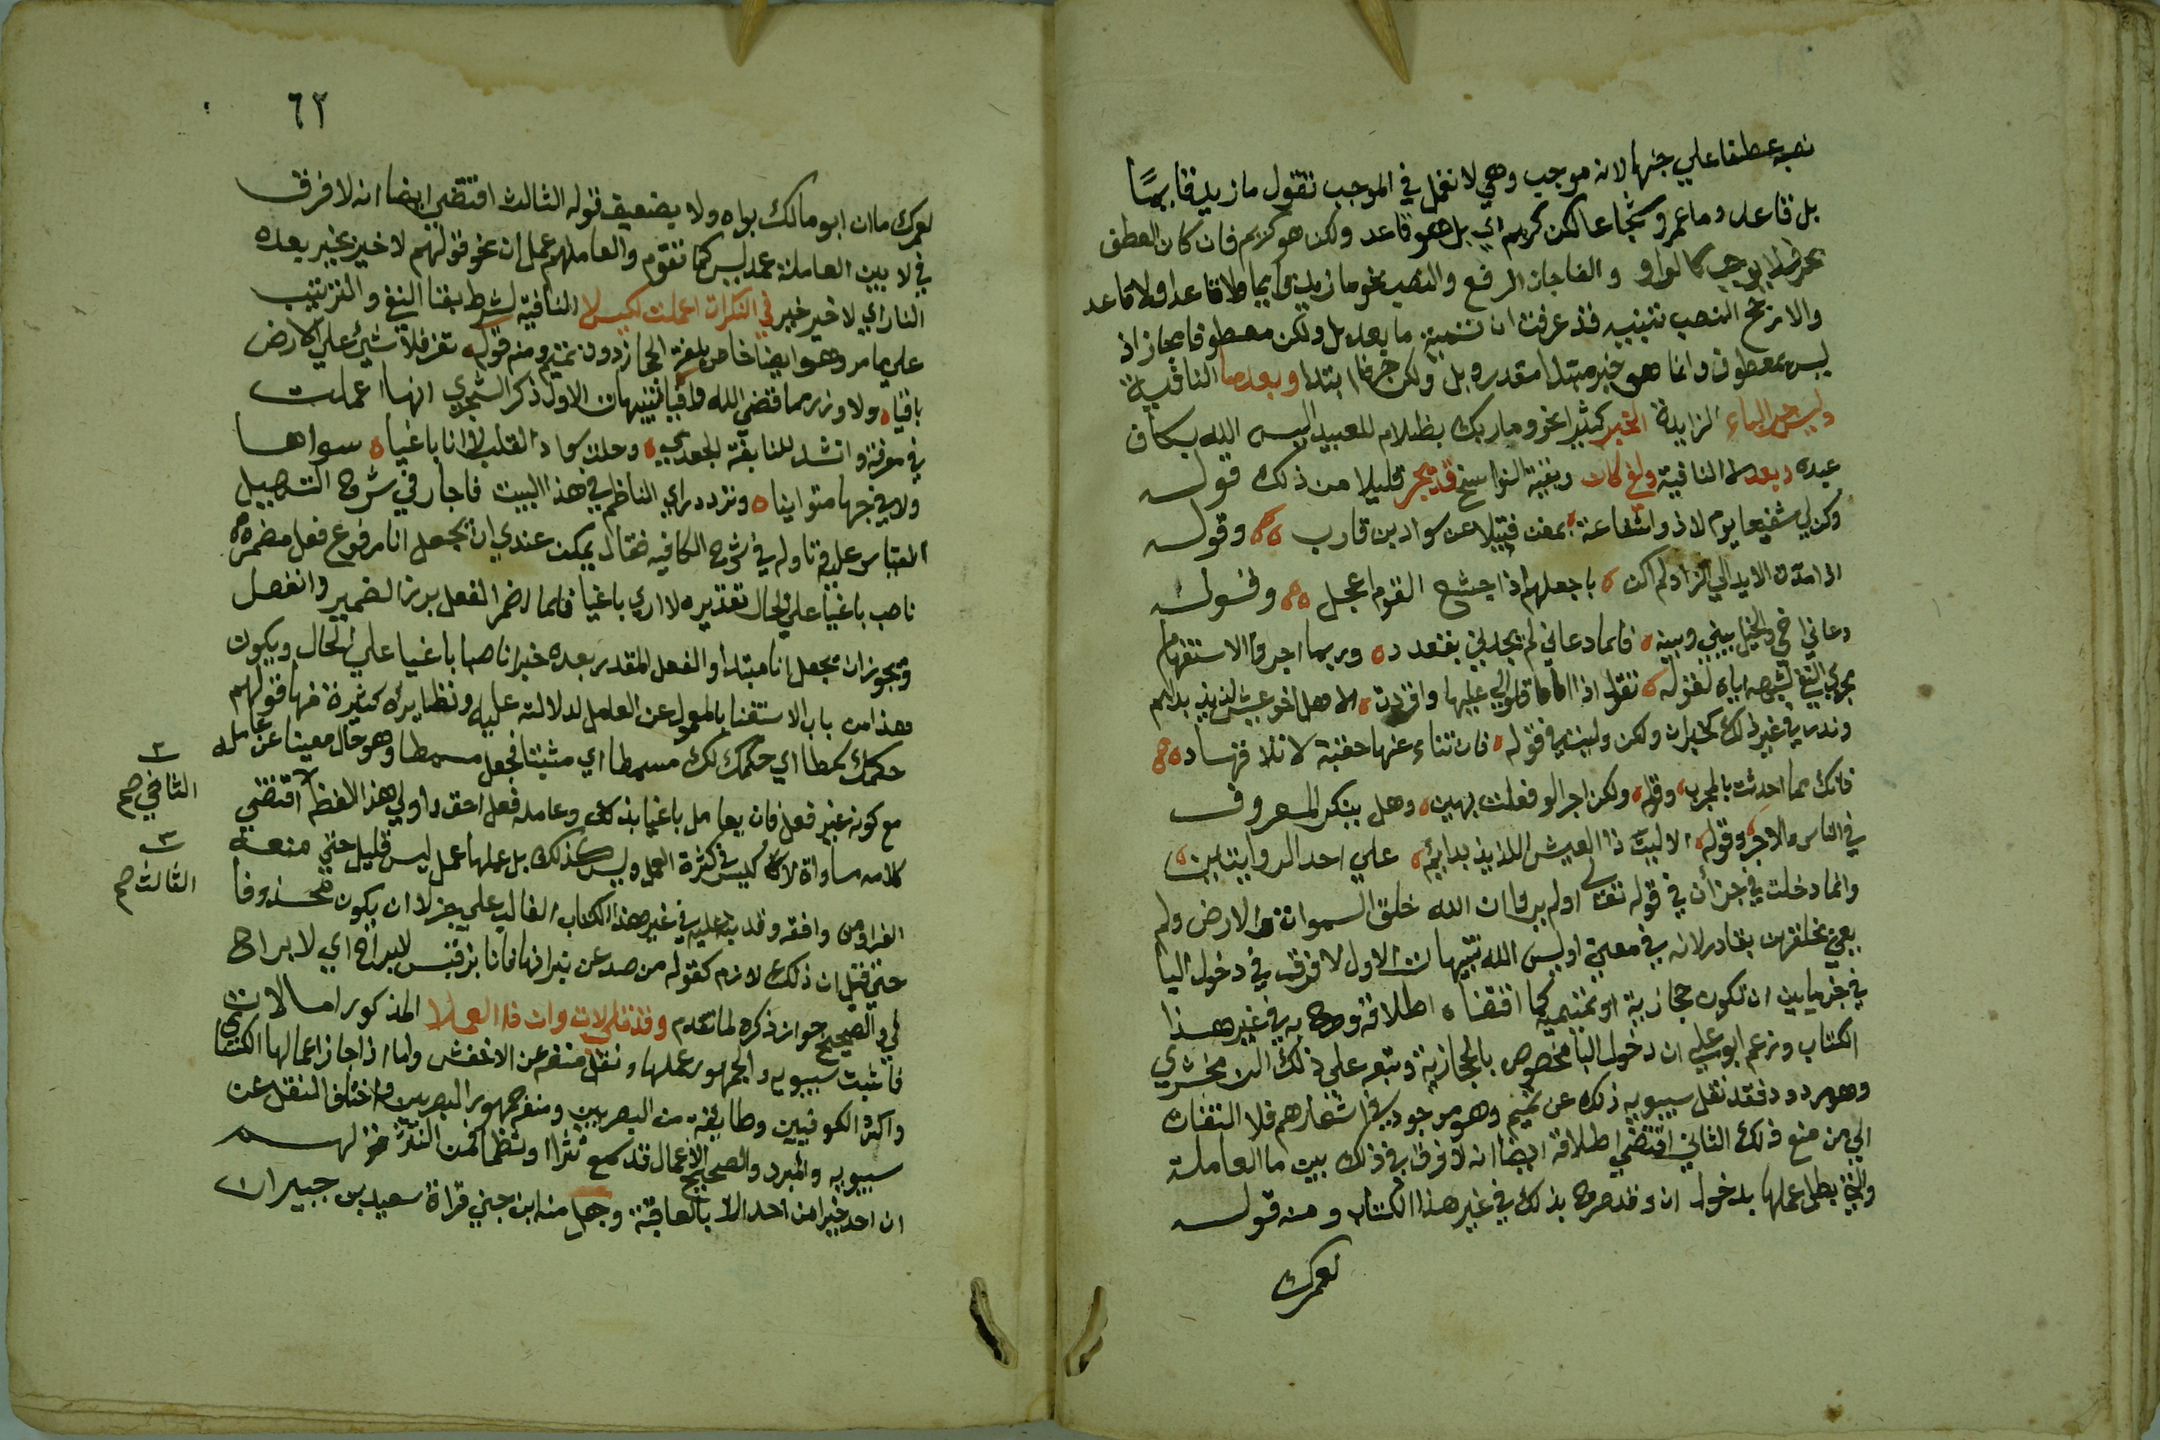 نصبه عطفا علي خبرها لانه موجب وهي لا تعمل في الموجب تقول ما زيد قايما
بل قاعد وما عمرو شجاعا لكن كريم اي بل هو قاعد ولكن هو كريم فان كان العطف
بحرف لا يوجب كالواو والفا جاز الرفع والنصب نحو ما زيد قايما ولا قاعدا ولا قاعد
والارجح النصب تنبيه قد عرفت ان تسمية ما بعد بل ولكن معطوفا مجاز اذ
ليس بمعطوف وانما هو خبر مبتدا مقدر وبل ولكن حرفا ابتدا وبعد ما النافية
وليس جر الباء الزايدة الخبر كثيرا نحو وما ربك بظلام للعبيد اليس الله بكاف
عبده وبعد لا النافية ونفي كان وبقية النواسخ قد يجر قليلا من ذلك قوله
وكن لي شفيعا يوم لا ذو شفاعة بمغن فتيلا عن سواد بن قارب وقوله
اذا مدت الايدي الي الزاد لم اكن باعجلهم اذ اجشع القوم اعجل وقوله
دعاني اخي والخيل بيني وبينه فلما دعاني لم يجدني بقعدد وربما اجروا الاستفهام
مجري النفي لشبهه اياه لقوله تقول اذا اقلولي عليها واقردت الا هل اخو عيش لذيذ بدايم
وندر في غير ذلك كخبر ان ولكن وليت في قوله فان تنا عنها حقبة لا تلاقها
فانك مما احدثت بالمجرب وقوله ولكن اجرا لو فعلت بهين وهل ينكر المعروف
في الناس والاجر وقوله الا ليت ذا العيش اللذيذ بدايم علي احد الروايتين
وانما دخلت في خبر ان في قوله تعالي اولم يروا ان الله خلق السموات والارض ولم
يعي بخلقهن بقادر لانه في معني اوليس الله تنبيهات الاول لا فرق في دخول البا
في خبر ما بين ان تكون حجازية او تميمية كما اقتضاه اطلاقه وصرح به في غير هذا
الكتاب وزعم ابو علي ان دخول البا مخصوص بالحجازية وتبعه علي ذلك الزمخشري
وهو مردود فقد نقل سيبويه ذلك عن تميم وهو موجود في اشعارهم فلا التفات
الي من منع ذلك الثاني اقتضي اطلاقه ايضا انه لا فرق في ذلك بين ما العاملة
والتي بطل عملها بدخول ان وقد صرح بذلك في غير هذا الكتاب ومنه قوله
لعمرك
٦٢
لعمرك ما ان ابو مالك بواه ولا بضعيف قوله الثالث اقتضي ايضا انه لا فرق
في لا بين العاملة عمل ليس كما تقدم والعاملة عمل ان نحو قولهم لا خير بخير بعده
النار اي لا خير خير في النكرات اعملت كليس لا النافية بشرط بقا النفي والترتيب
علي ما مر وهو ايضا خاص بلغة الحجاز دون تميم ومنه قوله تعز فلا شيء علي الارض
باقيا ولا وزر مما قضي الله واقيا تنبيهات الاول ذكر الشجري انها اعملت
في معرفة وانشد للنابغة الجعدي وحلت سواد القلب لا انا باغيا سواها
ولا في حبها متوانيا وتردد راي الناظم في هذا البيت فاجاز في شرح التسهيل
القياس عليه وتاوله في شرح الكافية فقال يمكن عندي ان يجعل انا مرفوع فعل مضمر
ناصب باغيا علي الحال تقديره لا اري باغيا فلما اضمر الفعل برز الضمير وانفصل
ويجوز ان يجعل انا مبتدا والفعل المقدر بعده خبرا ناصبا باغيا علي الحال ويكون
هذا من باب الاستغنا بالمعمول عن العامل لدلالته عليه ونظايره كثيرة منها قولهم
حكمك مسمطا اي حكمك لك مسمطا اي مثبتا فجعل مسمطا وهو حال مغنيا عن عامله
مع كونه غير فعل فان يعامل باغيا بذلك وعامله فعل احق واولي هذا لفظه اقتضي
كلامه مساواة لا كليس في كثرة العمل وليس كذلك بل عملها عمل ليس قليل حتي منعه
الفرا ومن وافقه وقد نبه عليه في غير هذا الكتاب الغالب علي خبر لا ان يكون محذوفا
حتي قيل ان ذلك لازم كقوله من صد عن نيرانها فانا بن قيس لا براح اي لا براح
لي والصحيح جواز ذكره لما تقدم وقد تلي لات وان ذا العملا المذكور اما لات
فاثبت سيبويه والجمهور عملها ونقل منعه عن الاخفش واما ان فاجاز اعمالها الكسائي
واكثر الكوفيين وطايفة من البصريين ومنعه جمهور البصريين واختلف النقل عن
سيبويه والمبرد والصحيح الاعمال قد سمع نثرا ونظما فمن النثر قولهم
ان احد خيرا من احد الا بالعافية وجعل منه ابن جني قراة سعيد بن جبير ان
الثاني صح
الثالث صح